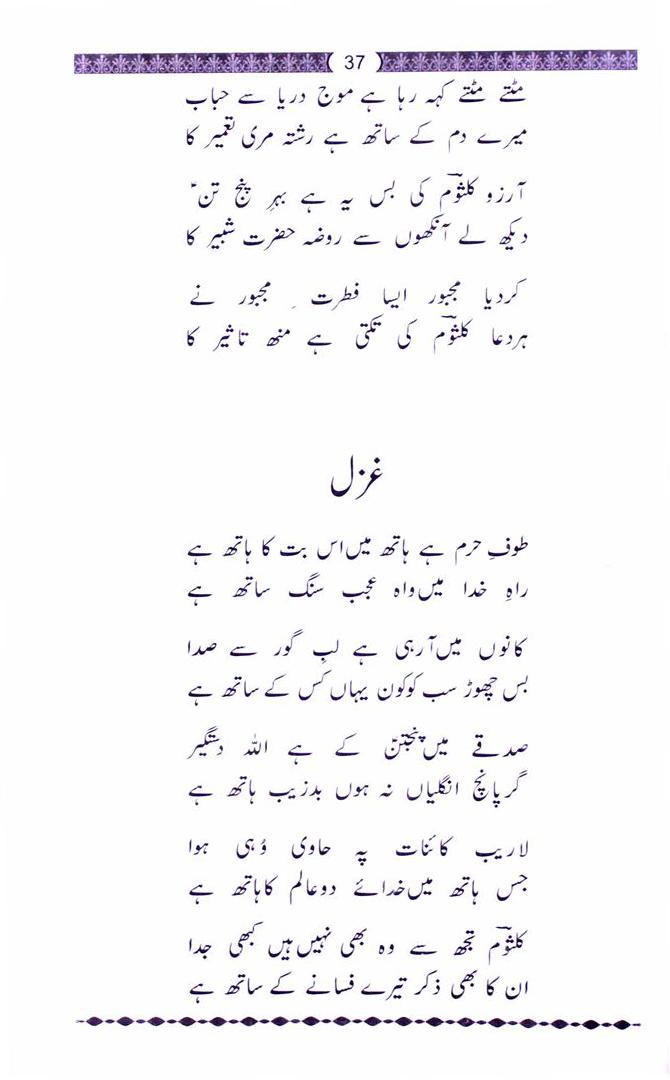 37
مٹتے مٹتے کہہ رہا ہے موج دریا سے حباب
میرے دم کے ساتھ ہے رشتہ مری تعمیر کا
آرزو کلثومؔ کی بس یہ ہے بہرِ پنج تنؑ
دیکھ لے آنکھوں سے روضہ حضرت شبیر کا
کردیا مجبور ایسا فطرت ِ مجبور نے
ہردعا کلثومؔ کی تکتی ہے منھ تاثیر کا
غزل
طوفِ حرم ہے ہاتھ میں اس بت کا ہاتھ ہے
راہِ خدا میں واہ عجب سنگ ساتھ ہے
کانوں میں آرہی ہے لبِ گور سے صدا
بس چھوڑ سب کو کون یہاں کس کے ساتھ ہے
صدقے میں پنجتنؑ کے ہے اللہ دستگیر
گر پانچ انگلیاں نہ ہوں بدزیب ہاتھ ہے
لاریب کائنات پہ حاوی وُہی ہوا
جس ہاتھ میں خدائے دوعالم کا ہاتھ ہے
کلثومؔ تجھ سے وہ بھی نہیں ہیں کبھی جدا
ان کا بھی ذکر تیرے فسانے کے ساتھ ہے